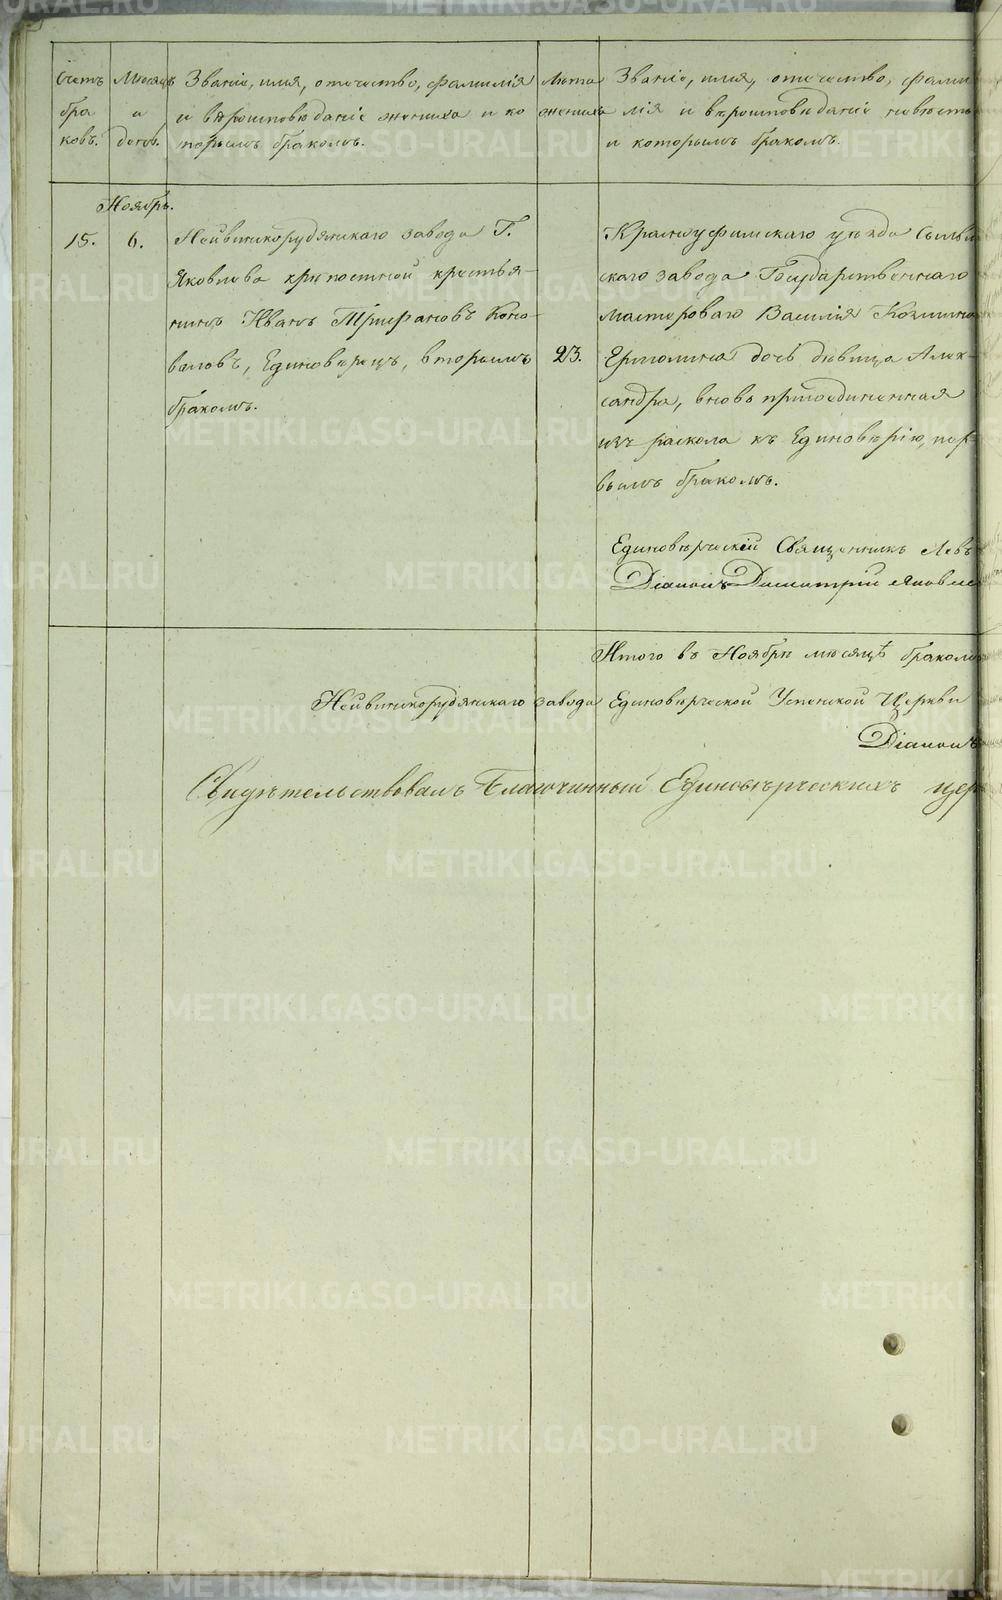 Счетъ бра ковъ.
Месяцъ и день.
Званіе, имя, отчество, фамилія
и вѣроисповѣданіе жениха и ко
торымъ бракомъ.
Лѣта
жениха
Званіе, имя, отчество, фами
лія и вѣроисповѣданіе невѣсты
и которымъ бракомъ.
Ноябрь.
15.
6.
Нейвинскорудянскаго завода Г.
Яковлева крѣпостной крестья-
нинъ Иванъ Трифановъ Коно-
валовъ, Единовѣрецъ, вторымъ
бракомъ.
23.
Красноуфимскаго уѣзда Сылвин
скаго завода Государственнаго
мастероваго Василія Козмина
дочь дѣвица Алек-
сандра, вновь присоединенная
изъ раскола къ Единовѣрію, пер-
вымъ бракомъ.
Единовѣрческій Священникъ Левъ
Діаконъ Димитрій Яковле
Итого въ Ноябрѣ месяцѣ браком
Нейвинскорудянскаго завода Единовѣрческой Успенской Церкви
Діаконъ
Свидѣтельствовалъ Благочинный Единовѣрческихъ цер
METRIKI.GASO-URAL.RU